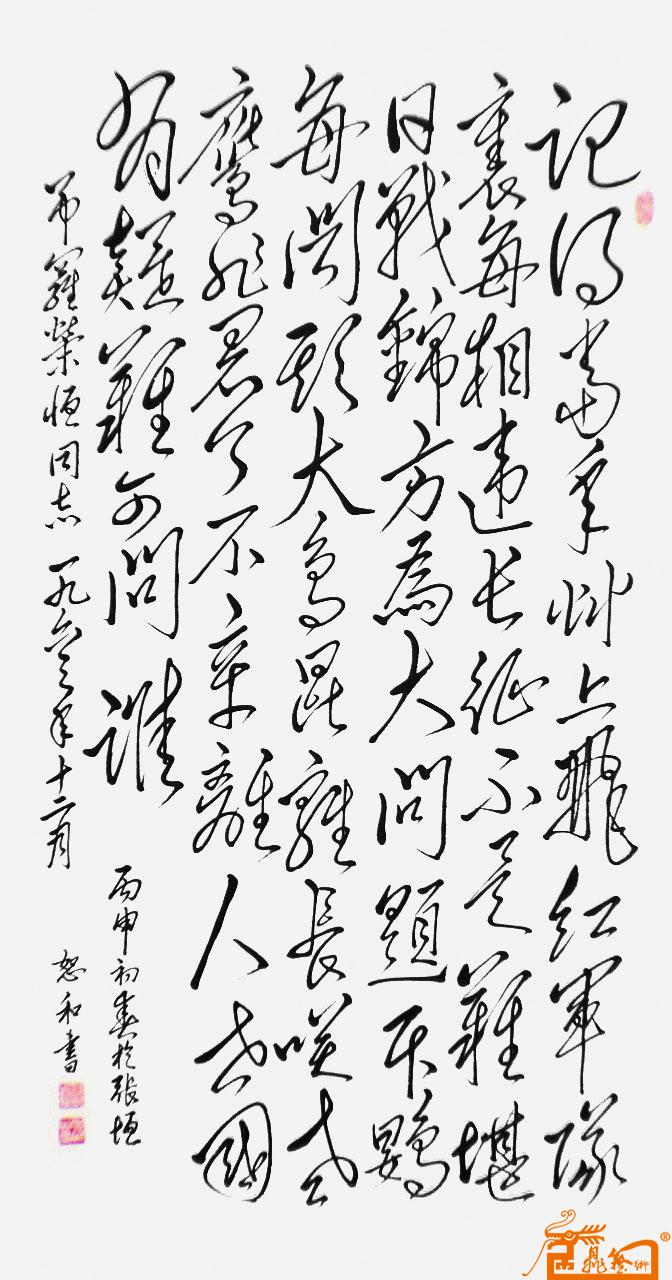 記得當年草上飛紅軍隊
裏每相违长征不是難堪
日戰錦方為大問題斥鷃
每聞欺大鳥昆雞長咲老
鷹非君今不幸離人世國
有疑難可問誰
吊羅榮恒同志 一九六三年十二月
丙申初春於張垣
恕和書